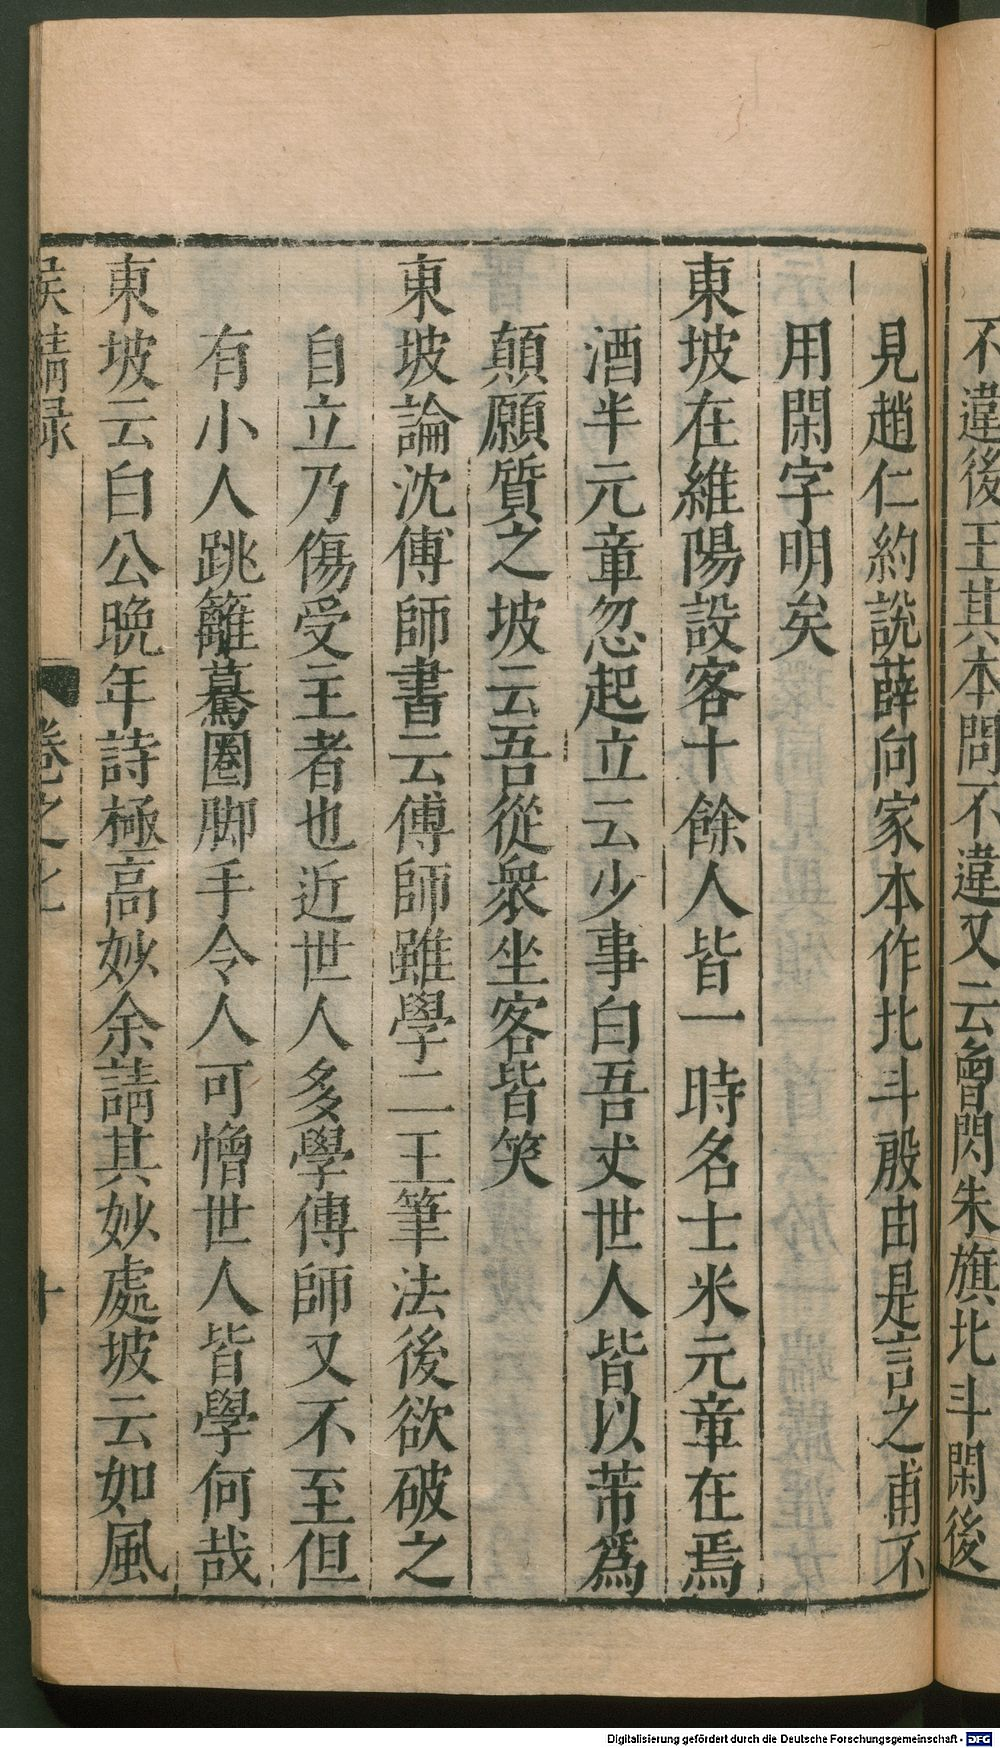 不違後王其本問不違又云曾閃朱旗北斗閑後
見趙仁約說薛向家本作北斗殷由是言之甫不
用閑字明矣
東坡在維陽設客十餘人皆一時名士米元章在焉
酒半元章忽起立云少事白吾丈世人皆以芾爲
顛願質之坡云吾從衆坐客皆笑
東坡論沈傅師書云傅師雖學二王筆法後欲破之
自立乃傷受王者也近世人多學傅師又不至但
有小人跳籬驀圈脚手令人可憎世人皆學何哉
東坡云白公晚年詩極高妙余請其妙處坡云如風
侯鯖録 卷之七 十
Digitalisierung gefördert durch die Deutsche Forschungsgemeinschaft - DFG